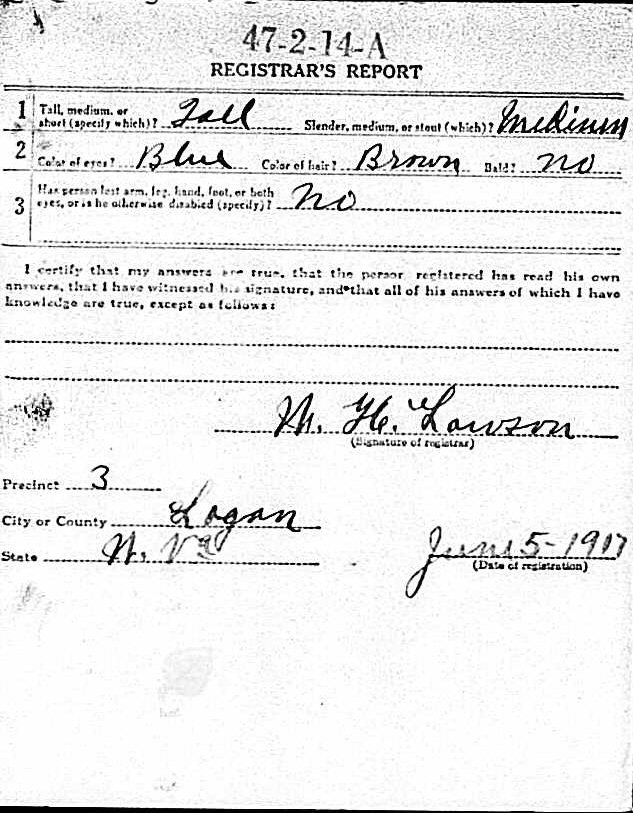 47-2-14-A
REGISTRAR'S REPORT
1 Tall, medium, or short (specify which)? Tall Slender, medium, or stout (which)? Medium
2 Color of eyes? Blue Color of hair? Brown Bald? no
3 Has person lost arm, leg, hand, foot, or both eyes, or is he otherwise disabled (specify)? No
I certify that my answers are true, that the person registered has read his own
answers, that I have witnessed his signature, and that all of his answers of which I have
knowledge are true, except as follows:
M. H. Lawson
(Signature of registrar)
Precinct 3
City or County Logan
State W. Va
June 5-1917
(Date of registration)